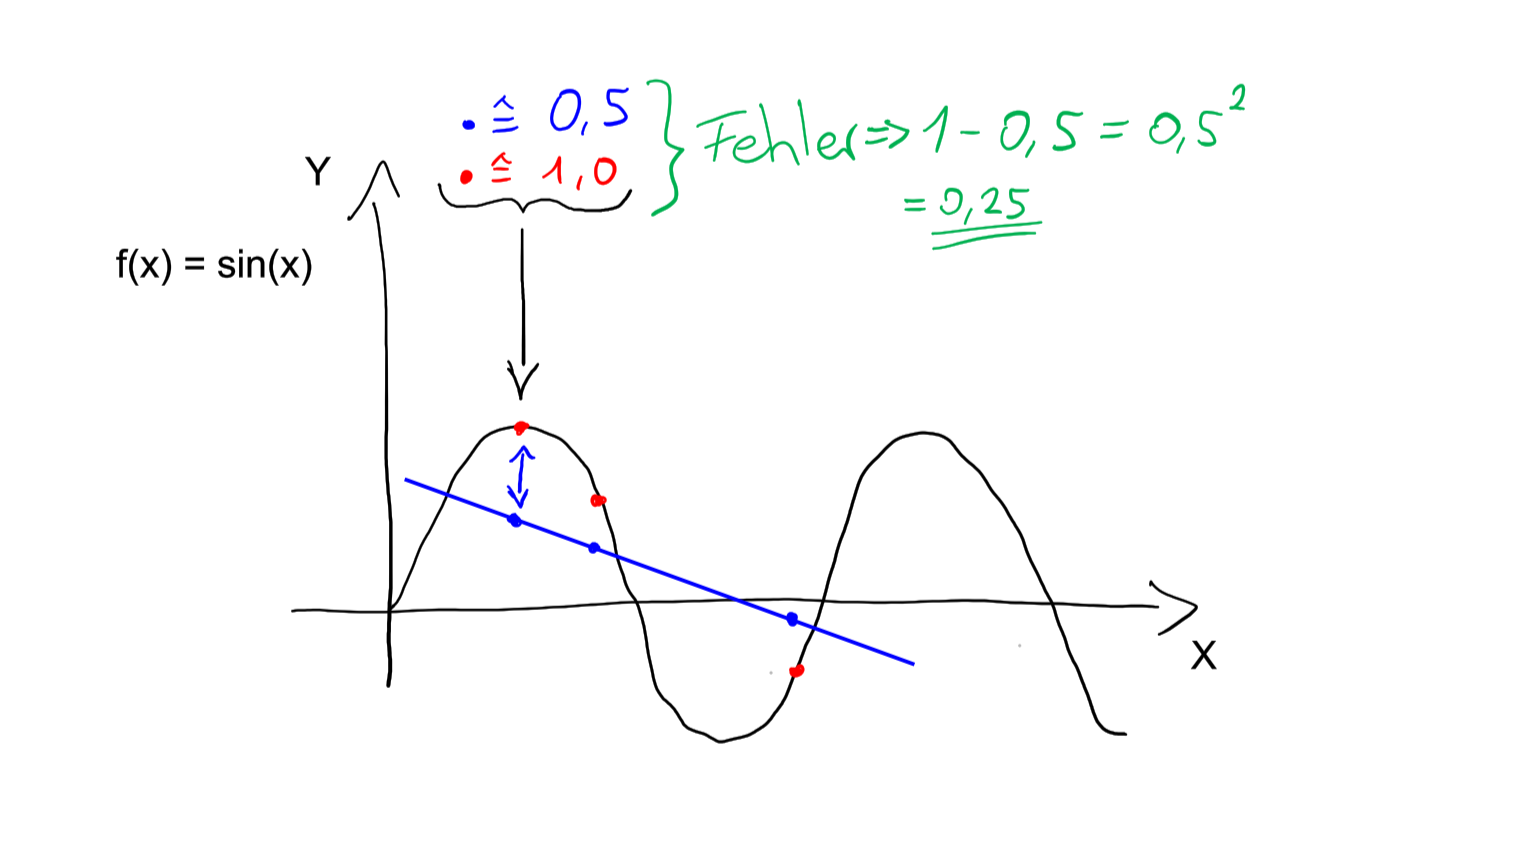 • ≙ 0,5
• ≙ 1,0
} Fehler => 1 - 0,5 = 0,5²
= 0,25
Y
f(x) = sin(x)
X